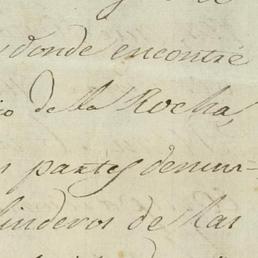 donde encontré
de la Rocha,
partes denun-
linderos de las